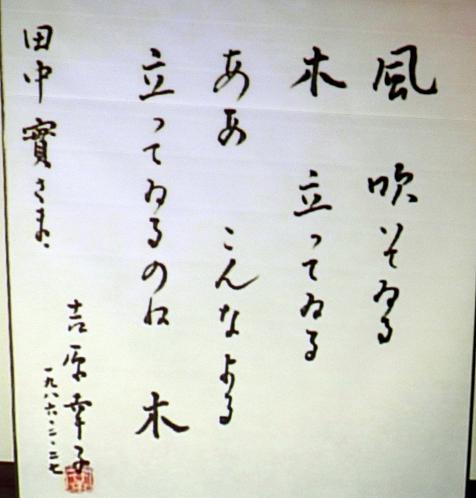 風 吹いてゐる
木 立ってゐる
ああ こんなよる
立ってゐるのね 木
吉原幸子
一九八六・二・二七
田中 實さま